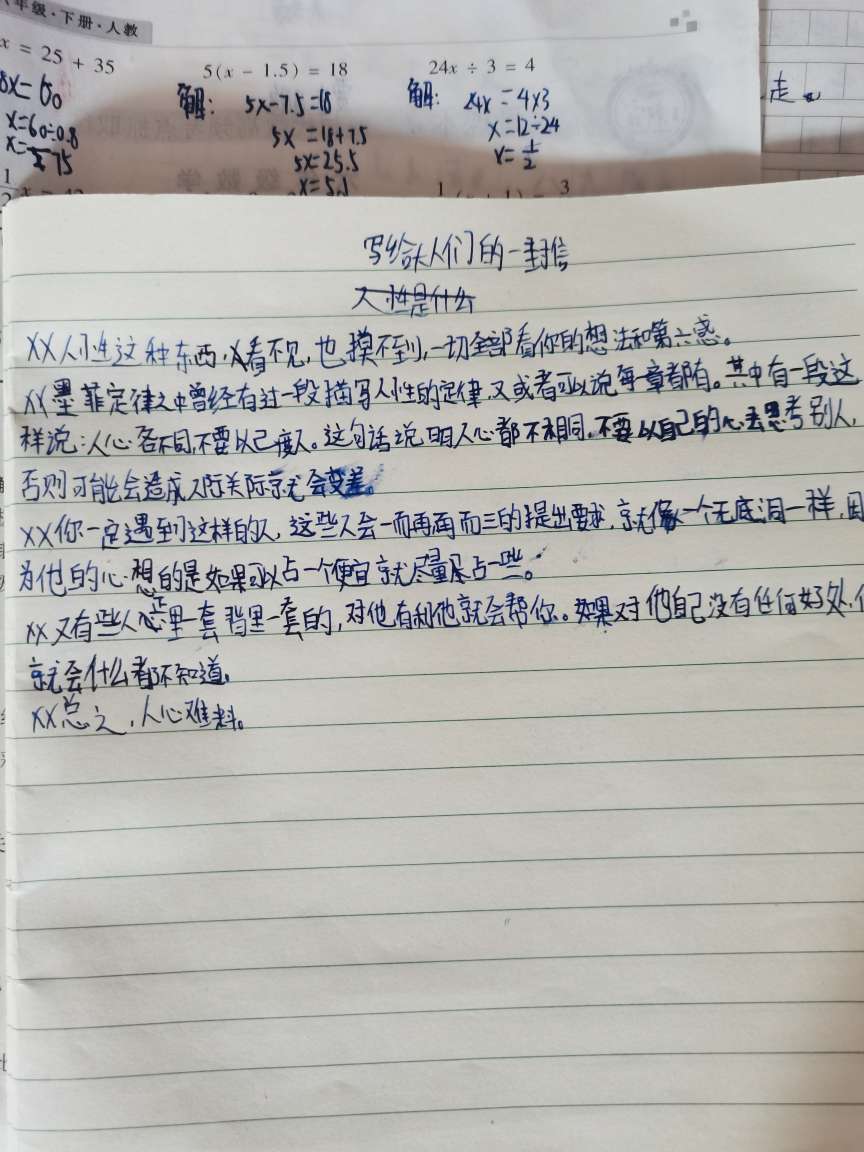 年级·下册·人教
x = 25 + 35
5(x − 1.5) = 18
24x ÷ 3 = 4
8x=60
x=60÷0.8
x=75
解: 5x-7.5=18
5x=18+7.5
5x=25.5
x=5.1
解: 24x=4×3
x=12÷24
x=1/2
走。
写给大人们的一封信
人性是什么
XX人性这种东西,看不见,也摸不到,一切全部看你的想法和第六感。
XX墨菲定律之中曾经有过一段描写人性的定律,又或者可以说每章都有。其中有一段这
样说:人心各不同,不要以己度人。这句话说明人心都不相同。不要以自己的心去思考别人,
否则可能会造成人际关际就会变差。
XX你一定遇到过这样的人,这些人会一而再再而三的提出要求,就像一个无底洞一样,因
为他的心想的是如果可以占一个便宜就尽量多占一些。
XX又有些人心正里一套背里一套的,对他有利他就会帮你。如果对他自己没有任何好处,
就会什么都不知道。
XX总之,人心难料。